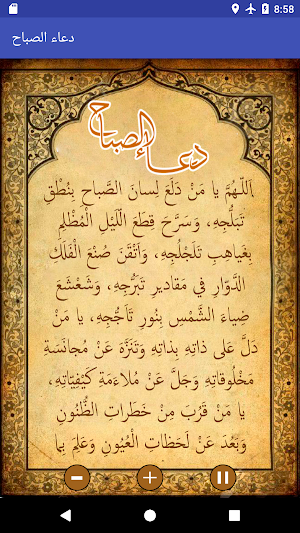 8:58
دعاء الصباح
دعاء الصباح
اَللّـهُمَّ يا مَنْ دَلَعَ لِسانَ الصَّباحِ بِنُطْقِ
تَبَلُّجِهِ، وَسَرَّحَ قِطَعَ اللَّيْلِ الْمُظْلِمِ
بِغَياهِبِ تَلَجْلُجِهِ، وَاَتْقَنَ صُنْعَ الْفَلَكِ
الدَّوّارِ في مَقاديرِ تَبَرُّجِهِ، وَشَعْشَعَ
ضِياءَ الشَّمْسِ بِنُورِ تَاَجُّجِهِ، يا مَنْ
دَلَّ عَلى ذاتِهِ بِذاتِهِ وَتَنَزَّهَ عَنْ مُجانَسَةِ
مَخْلُوقاتِهِ وَجَلَّ عَنْ مُلاءَمَةِ كَيْفِيّاتِهِ،
يا مَنْ قَرُبَ مِنْ خَطَراتِ الظُّنُونِ
وَبَعُدَ عَنْ لَحَظاتِ الْعُيُونِ وَعَلِمَ بِما